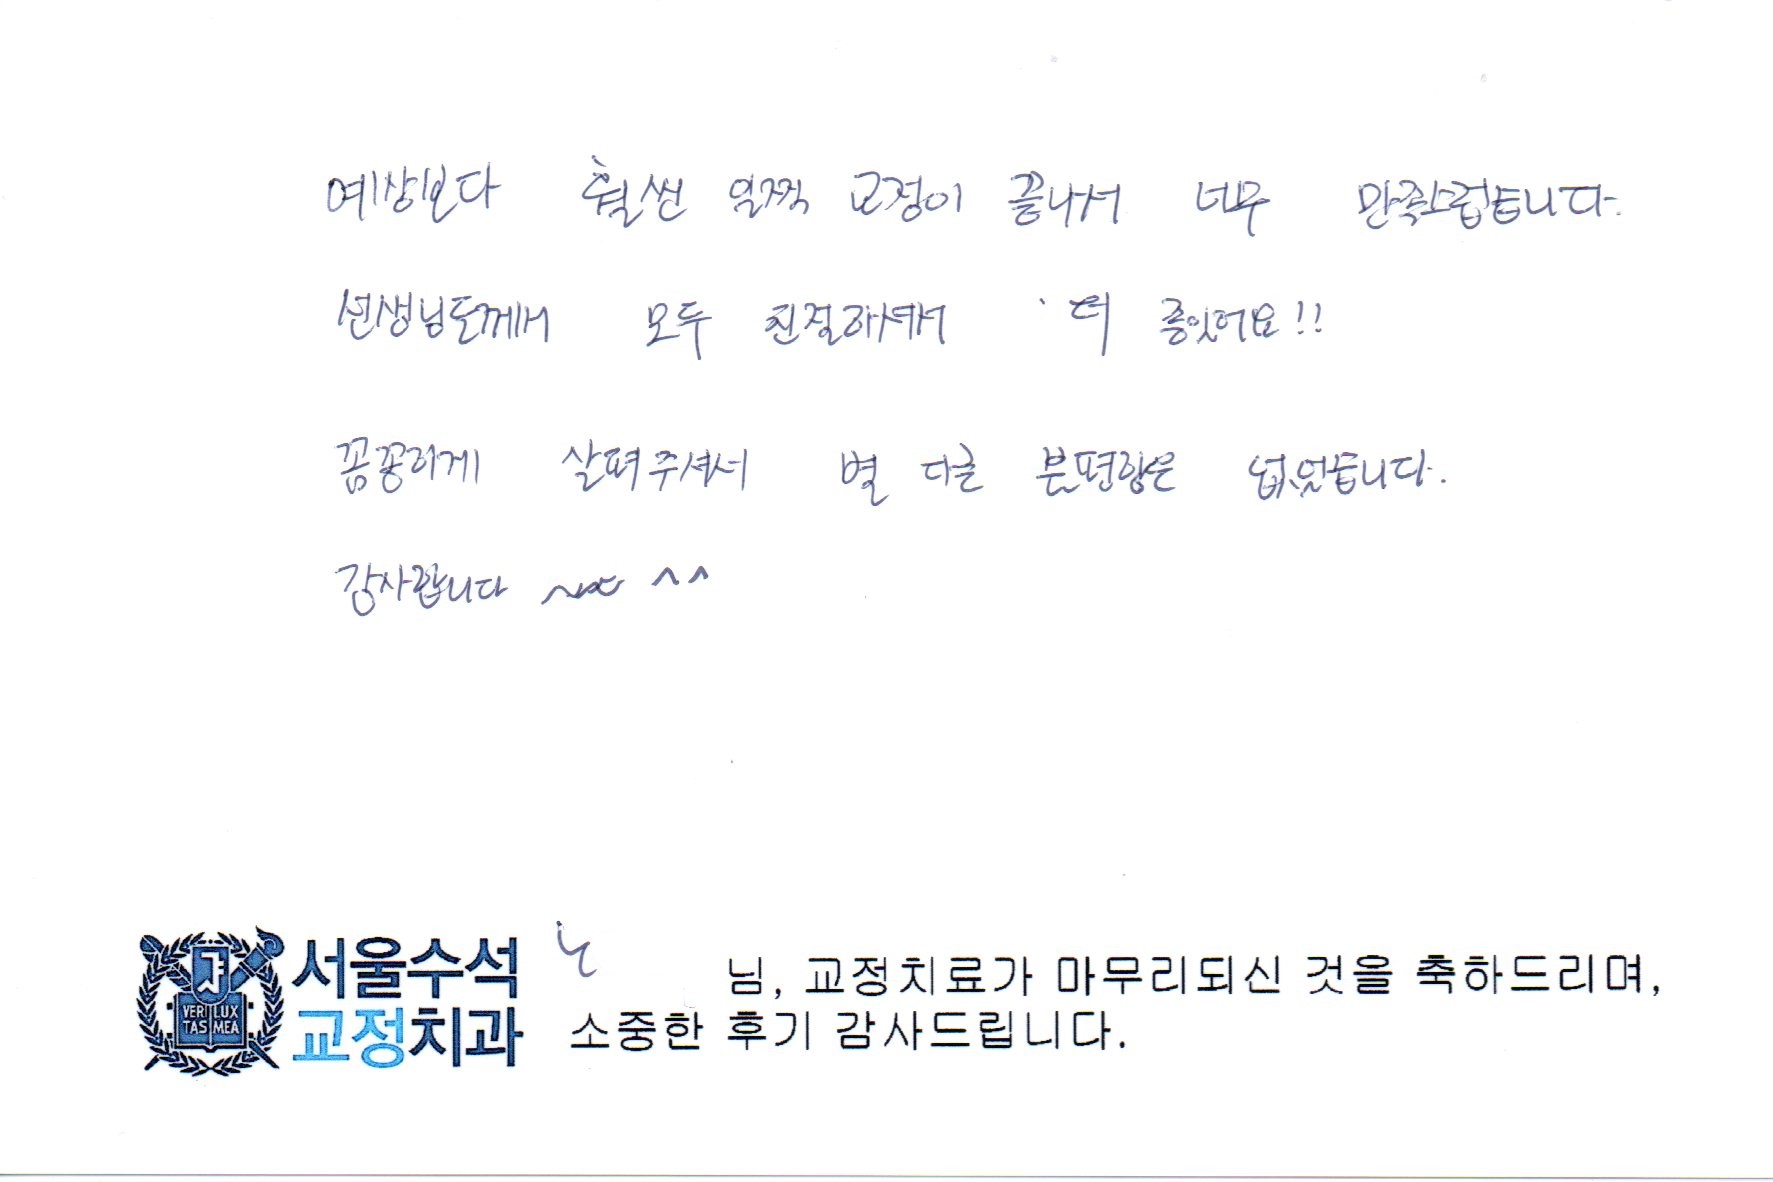 예상보다 훨씬 일찍 교정이 끝나서 너무 만족스럽습니다.
선생님들께서 모두 친절하셔서 더 좋았어요!!
꼼꼼하게 살펴주셔서 별 다른 불편함은 없었습니다.
감사합니다 ~~ ^^
서울수석
교정치과
VERI LUX
TAS MEA
노 님, 교정치료가 마무리되신 것을 축하드리며,
소중한 후기 감사드립니다.